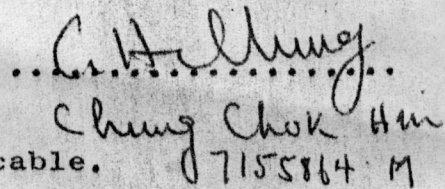 C. H. Chung
Chung Chok Hin
cable. 7155864 M